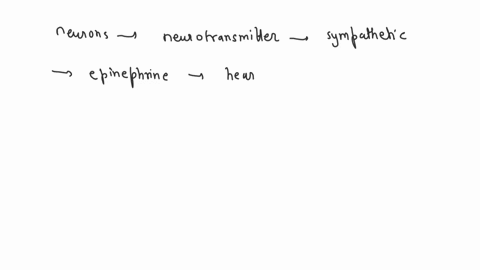 neurons → neurotransmitter → sympathetic
→ epinephrine → hear